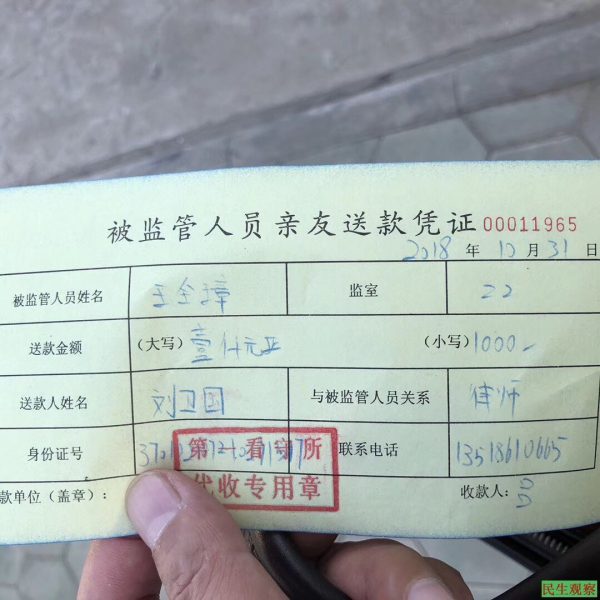 被监管人员亲友送款凭证 00011965
2018 年 10 月 31 日
被监管人员姓名 王全璋 监室 22
送款金额 (大写) 壹仟元正 (小写) 1000
送款人姓名 刘卫国 与被监管人员关系 律师
身份证号 联系电话 13518610665
第一看守所
代收专用章
款单位(盖章): 收款人:
民生观察